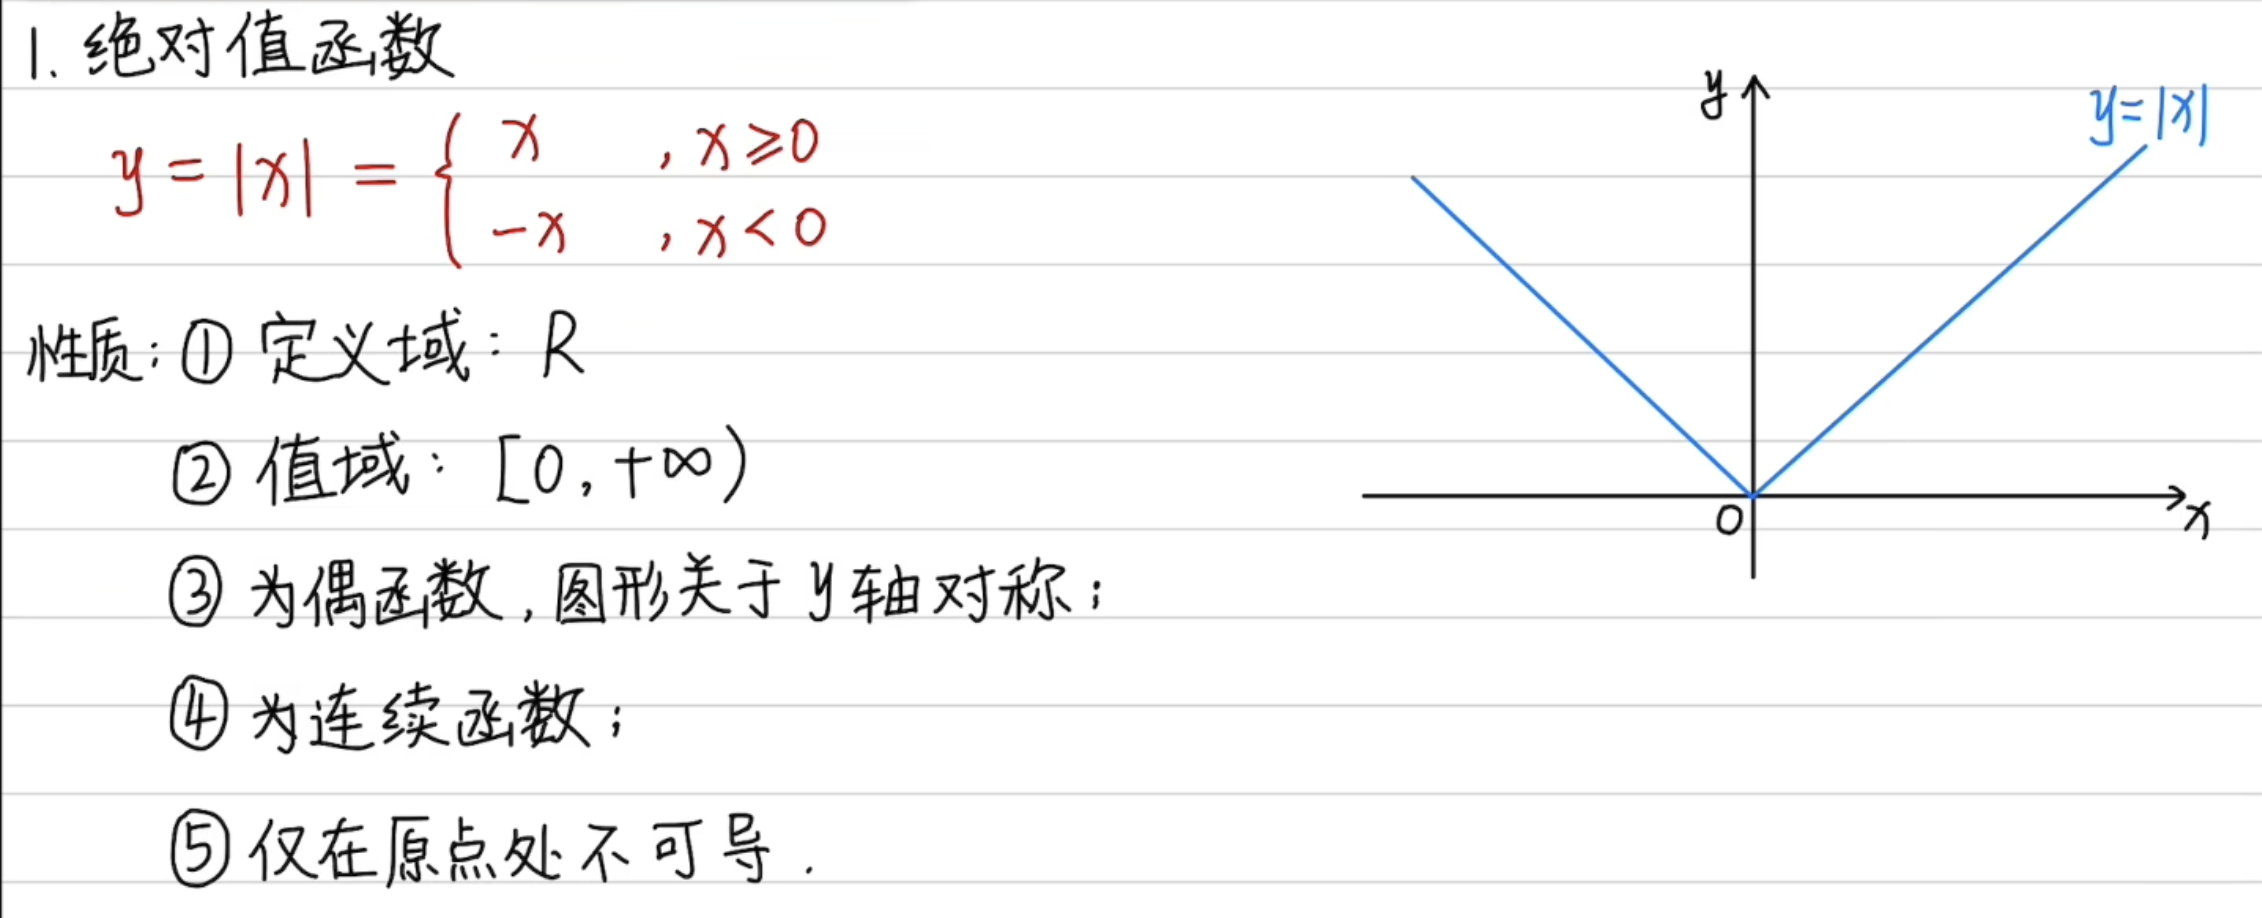 1. 绝对值函数
y = |x| = { x , x ≥ 0
-x , x < 0
性质: ① 定义域: R
② 值域: [0, +∞)
③ 为偶函数, 图形关于 y 轴对称;
④ 为连续函数;
⑤ 仅在原点处不可导.
y
y=|x|
O
x